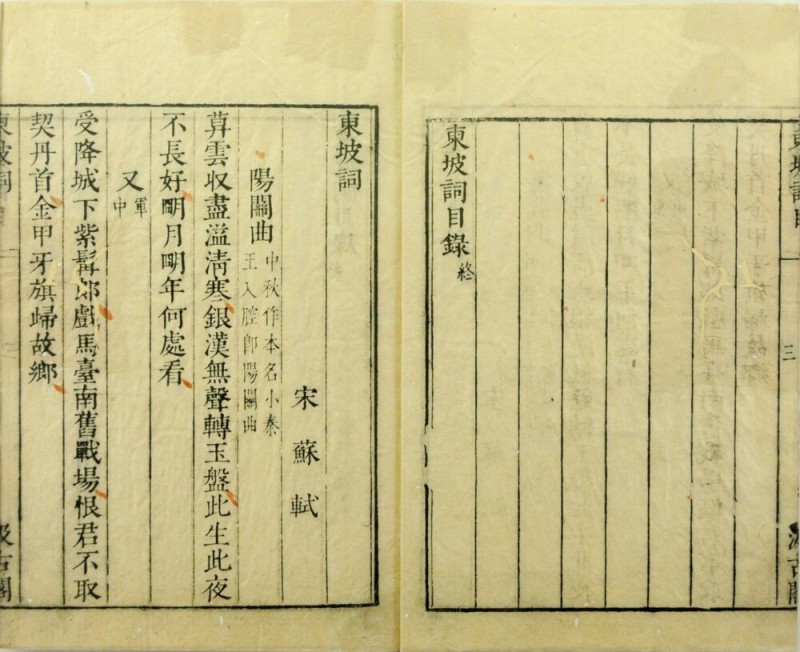 東坡詞目
三
汲古閣
東坡詞目錄終
東坡詞
宋蘇軾
陽關曲 中秋作本名小秦
王入腔即陽關曲
暮雲収盡溢清寒銀漢無聲轉玉盤此生此夜
不長好眀月眀年何處看
又 軍
中
受降城下紫髯郎戲馬臺南舊戰場恨君不取
契丹首金甲牙旗歸故鄉
東坡詞
汲古閣